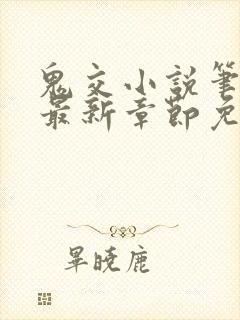 鬼文小說筆
最新章節免
畢曉鹿